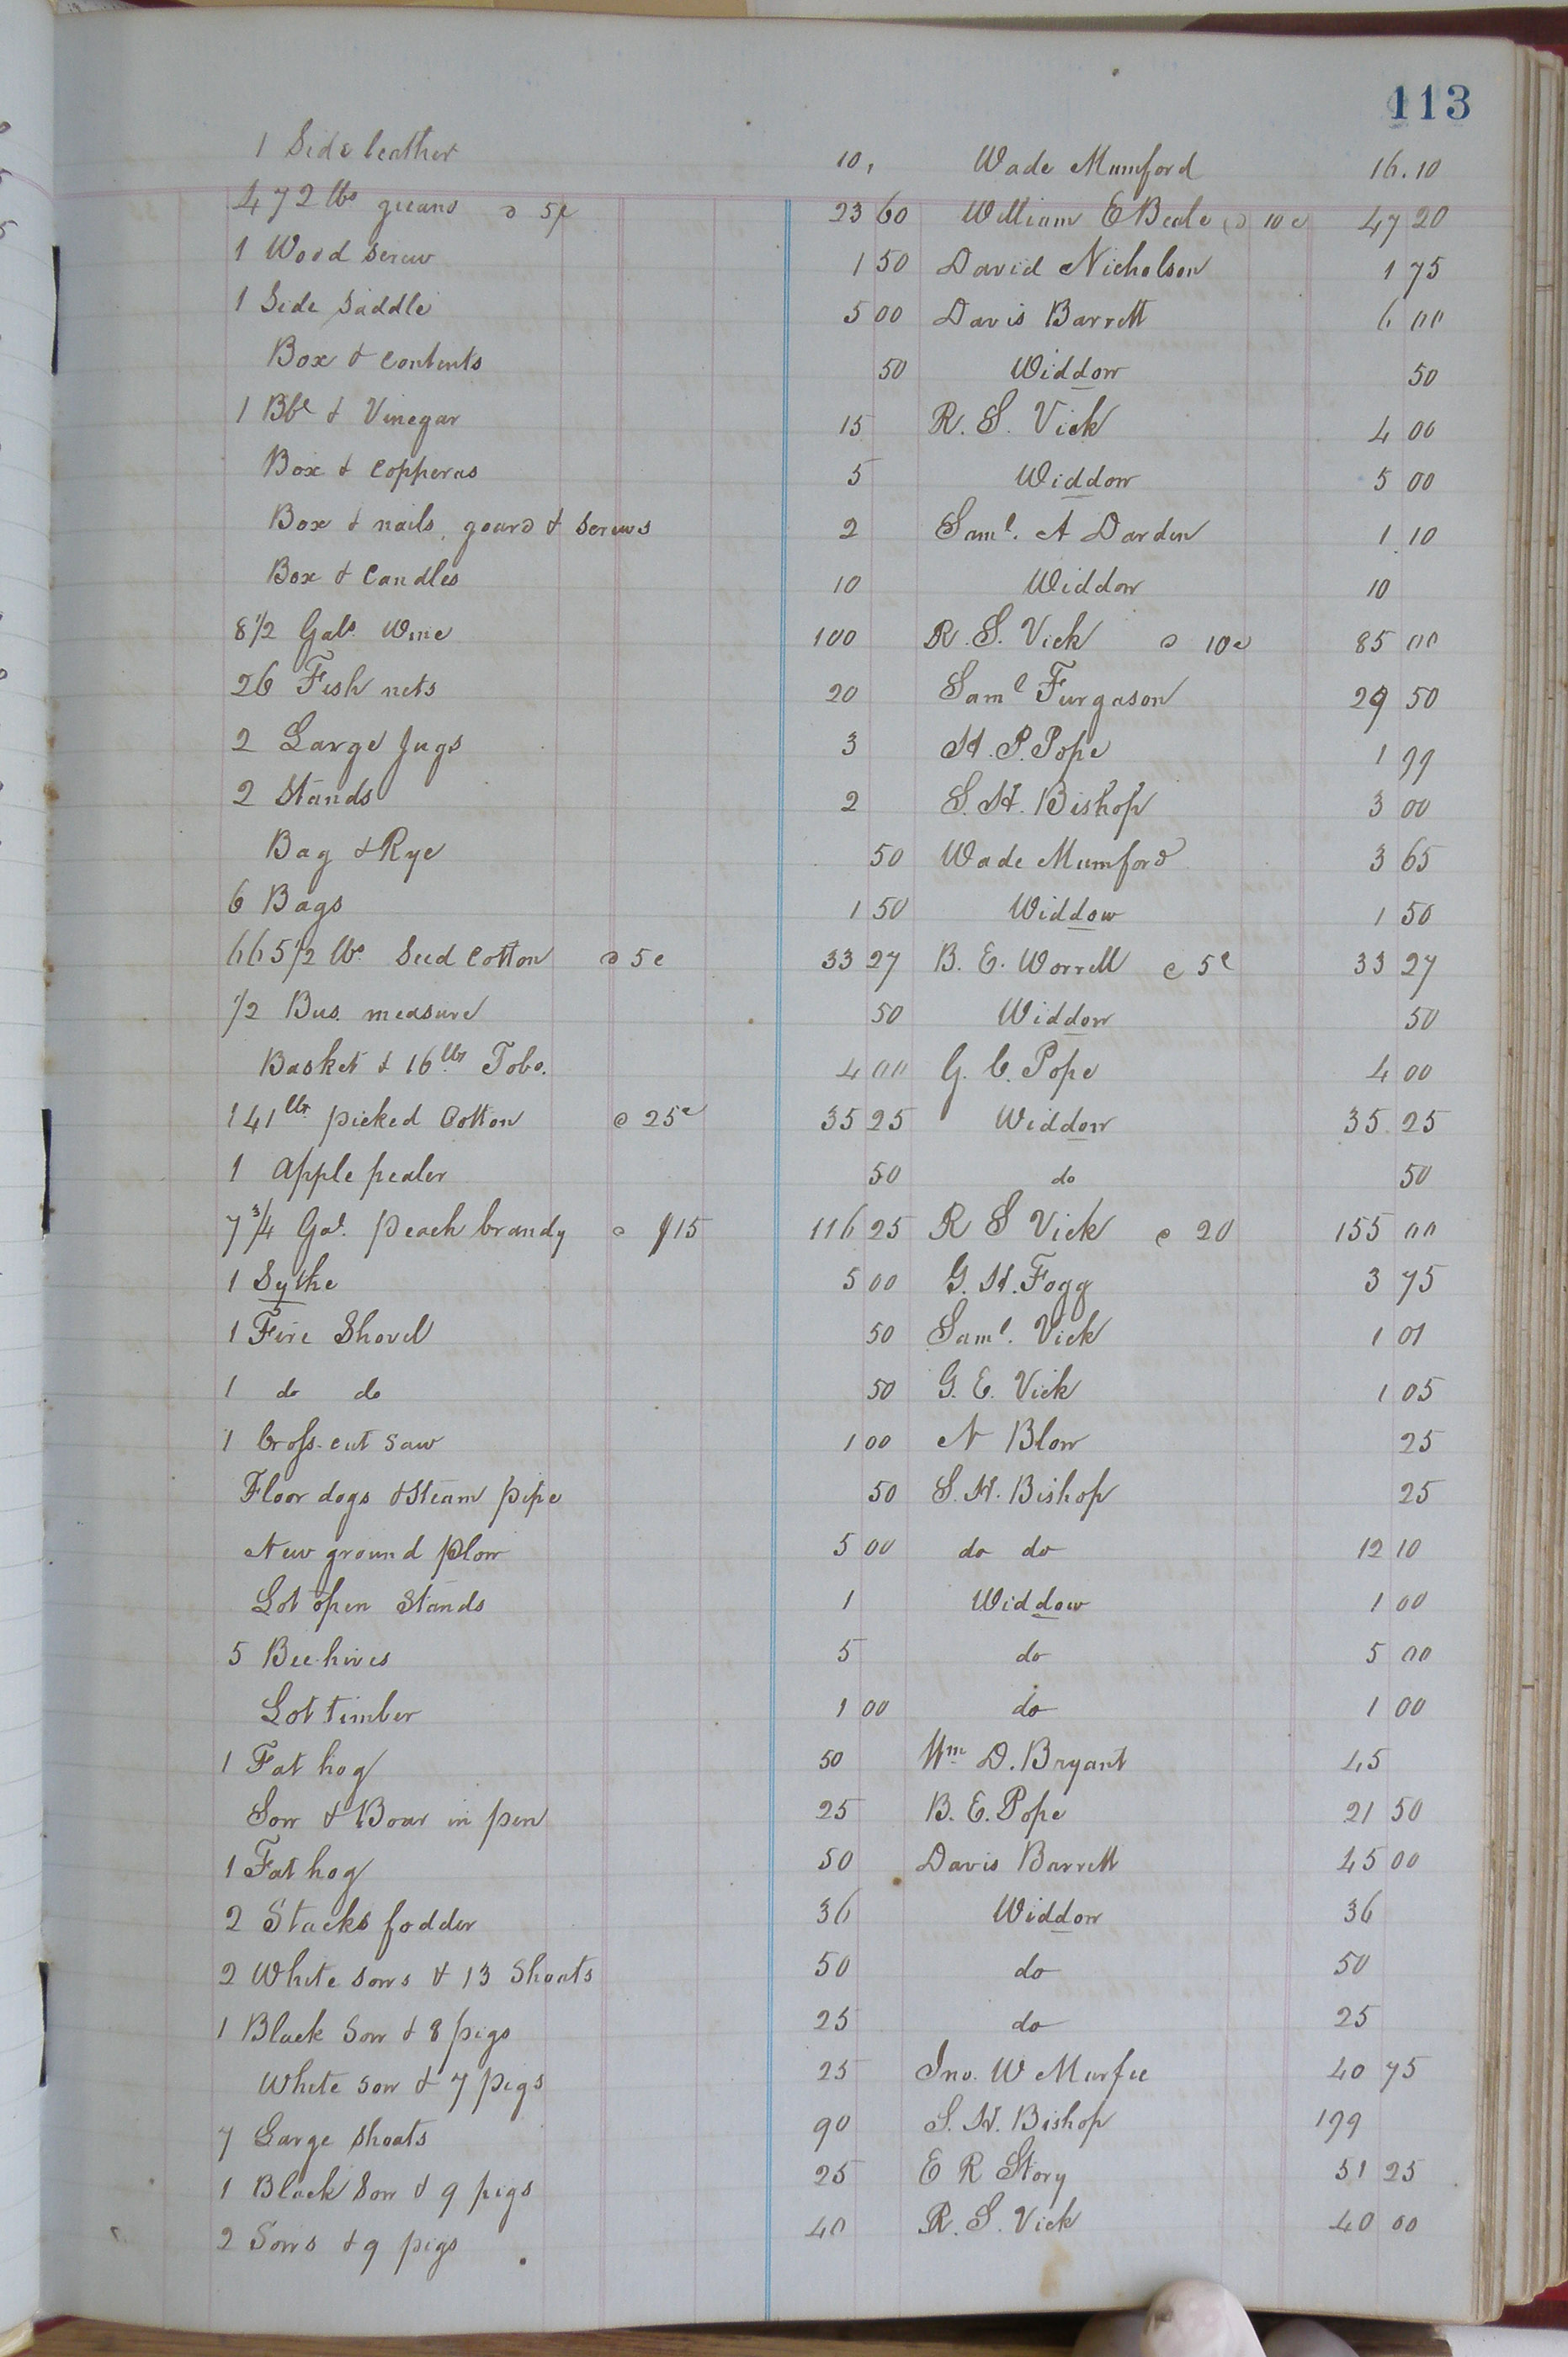 113
1 Side leather 10, Wade Mumford 16.10
472 lbs @ 5c 23 60 William E Beale @ 10c 47 20
1 Wood Screw 1 50 David Nicholson 1 75
1 Side Saddle 5 00 Davis Barrett 6 00
Box & contents 50 Widdow 50
1 Bbl & Vinegar 15 R. S. Vick 4 00
Box & Copperas 5 Widdow 5 00
Box & nails, gourd & Screws 2 Saml. A Darden 1.10
Box & Candles 10 Widdow 10
8 1/2 Gals. Wine 100 R. S. Vick @ 10c 85 00
26 Fish nets 20 Saml Furgason 29 50
2 Large Jugs 3 H. P. Pope 1 99
2 Stands 2 S. H. Bishop 3 00
Bag & Rye 50 Wade Mumford 3 65
6 Bags 1 50 Widdow 1 50
665 1/2 lbs. Seed Cotton @ 5c 33 27 B. E. Worrell @ 5c 33 27
1/2 Bus. measure 50 Widdow 50
Basket & 16 lbs Tobo. 4 00 G. C. Pope 4 00
141 lbs. picked Cotton @ 25c 35 25 Widdow 35.25
1 Apple pealer 50 do 50
7 3/4 Gal. peach brandy @ $15 116 25 R S Vick @ 20 155 00
1 Sythe 5 00 G. H. Fogg 3 75
1 Fire Shovel 50 Saml. Vick 1 01
1 do do 50 G. E. Vick 1 05
1 Cross-cut Saw 1 00 N Blow 25
Floor dogs & Steam pipe 50 S. H. Bishop 25
New ground plow 5 00 do do 12 10
Lot open Stands 1 Widdow 1 00
5 Bee-hives 5 do 5 00
Lot timber 1 00 do 1 00
1 Fat hog 50 Wm D. Bryant 45
Sow & Boar in pen 25 B. E. Pope 21 50
1 Fat hog 50 Davis Barrett 45 00
2 Stacks fodder 36 Widdow 36
2 White Sows & 13 Shoats 50 do 50
1 Black Sow & 8 pigs 25 do 25
White Sow & 7 pigs 25 Jno. W Murfee 40 75
7 Large Shoats 90 S. H. Bishop 199
1 Black Sow & 9 pigs 25 E R Story 51 25
2 Sows & 9 pigs 40 R. S. Vick 40 00